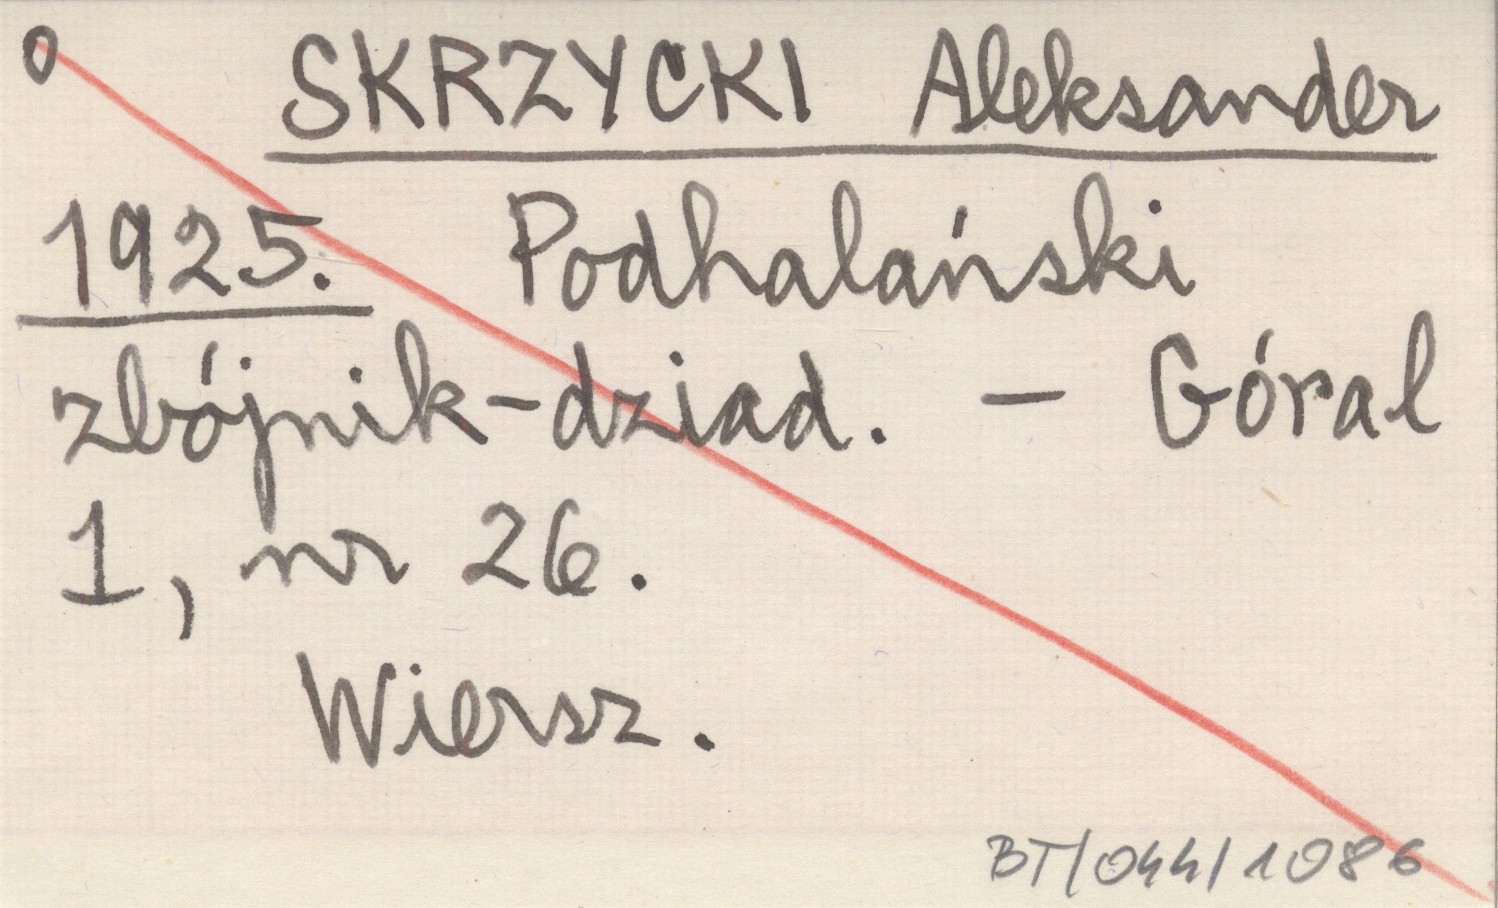 0 SKRZYCKI Aleksander
1925. Podhalański
zbójnik-dziad. — Góral
1, nr 26.
Wiersz.
BT/044/1086